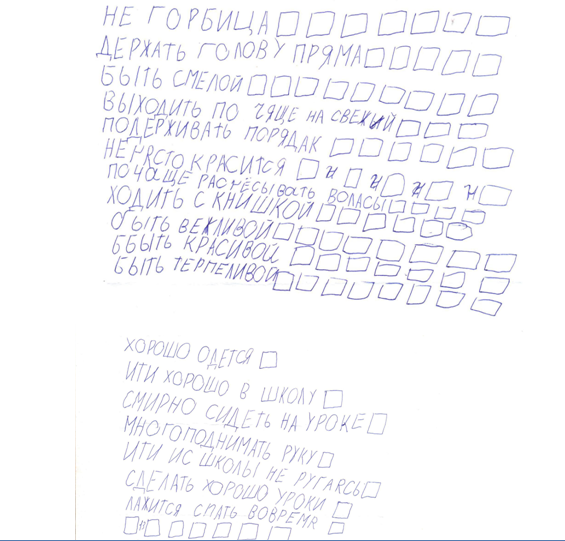 НЕ ГОРБИЦА
ДЕРЖАТЬ ГОЛОВУ ПРЯМА
БЫТЬ СМЕЛОЙ
ВЫХОДИТЬ ПО ЧЯЩЕ НА СВЕЖИЙ
ПОДЕРЖИВАТЬ ПОРЯДАК
НЕПРЯСТО КРАСИТСЯ
ПОЧАЩЕ РАСЧЕСЫВАТЬ ВОЛАСЫ
ХОДИТЬ С КНИШКОЙ
БЫТЬ ВЕЖЛИВОЙ
ББЫТЬ КРАСИВОЙ
БЫТЬ ТЕРПЕЛИВОЙ
ХОРОШО ОДЕТСЯ
ИТИ ХОРОШО В ШКОЛУ
СМИРНО СИДЕТЬ НА УРОКЕ
МНОГО ПОДНИМАТЬ РУКУ
ИТИ ИС ШКОЛЫ НЕ РУГАЯСЬ
СДЕЛАТЬ ХОРОШО УРОКИ
ЛАЖИТСЯ СПАТЬ ВОВРЕМЯ